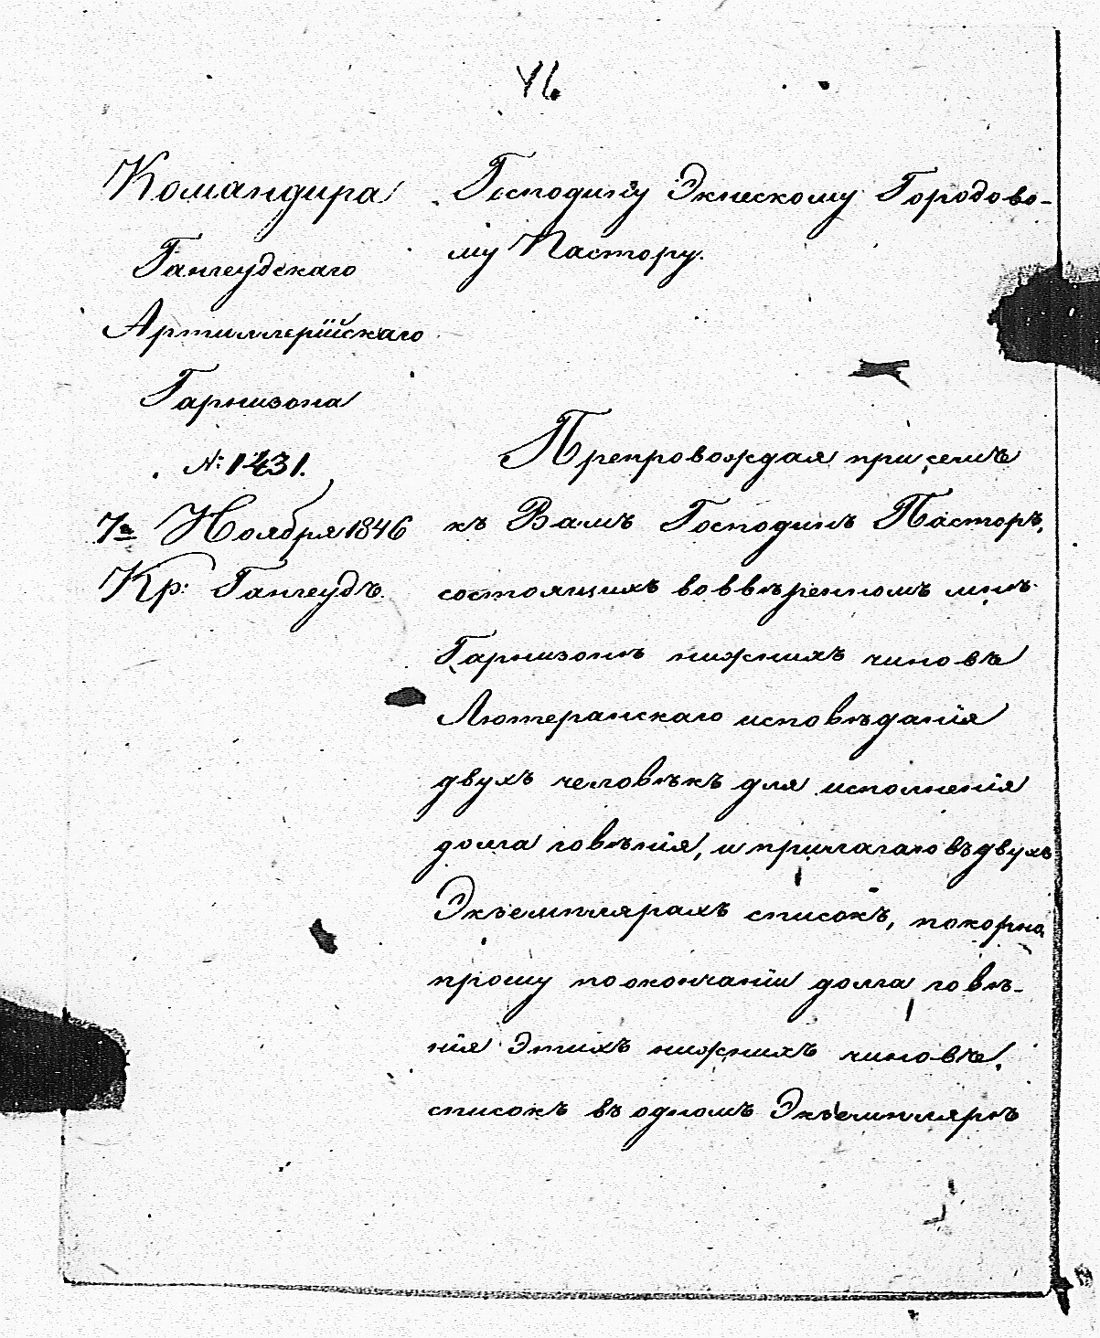 46
Командира
Гангеудскаго
Артиллерійскаго
Гарнизона
№: 1431.
7го Ноября 1846
Кр: Гангеудъ.
Господину Экнескому Городово-
му Пастору.
Препровождая при семъ
къ Вамъ Господинъ Пасторъ,
состоящихъ во ввѣренномъ мнѣ
Гарнизонѣ нижнихъ чиновъ
Лютеранскаго исповѣданія
двухъ человѣкъ для исполненія
долга говѣнія, и прилагаю въ двухъ
Экъемплярахъ списокъ, покорно
прошу по окончаніи долга говѣ-
нія этихъ нижнихъ чиновъ,
списокъ въ одномъ Экъемплярѣ